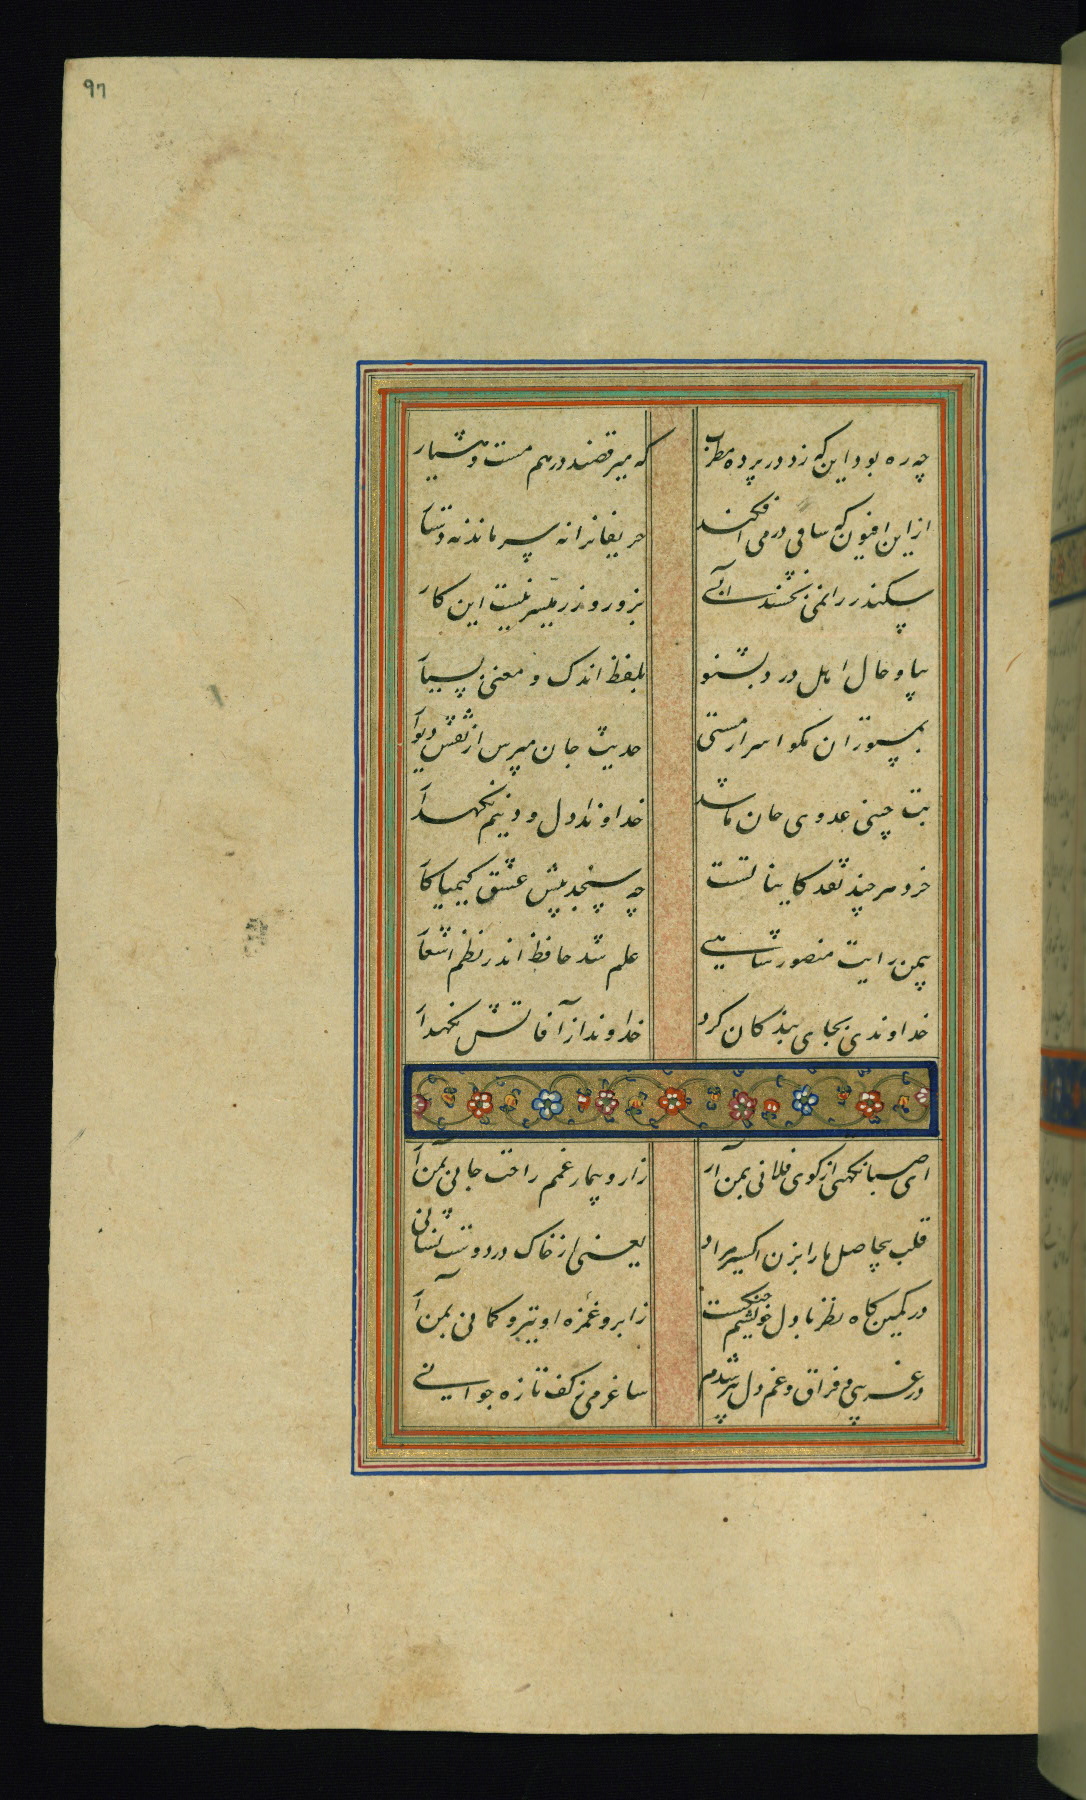 97
چه ره بود این که زد در پرده مطرب که میرقصند درهم مست و هشیار
از این افیون که ساقی در می افکند حریفانرا نه سر ماند نه دستار
سکندر را نمی بخشند آبی بزور و زر میسر نیست این کار
بیا و حال اهل درد بشنو بلفظ اندک و معنی بسیار
بمستوران مگو اسرار مستی حدیث جان مپرس از نقش دیوار
بت چینی عدوی جان ما شد خداوندا دل و دینم نگهدار
خرد هر چند نقد کاینات است چه سنجد پیش عشق کیمیاکار
بیمن رایت منصور شاهی علم شد حافظ اندر نظم اشعار
خداوندی بجای بندگان کرد خداوندا ز آفاتش نگهدار
ای صبا نکهتی از کوی فلانی بمن آر زار و بیمار غمم راحت جانی بمن آر
قلب بیحاصل ما را بزن اکسیر مراد یعنی از خاک در دوست نشانی
در کمین گاه نظر با دل خویشم جنگست ز ابرو و غمزه او تیر و کمانی بمن آر
در غریبی و فراق و غم دل پیر شدم ساغر می ز کف تازه جوانی